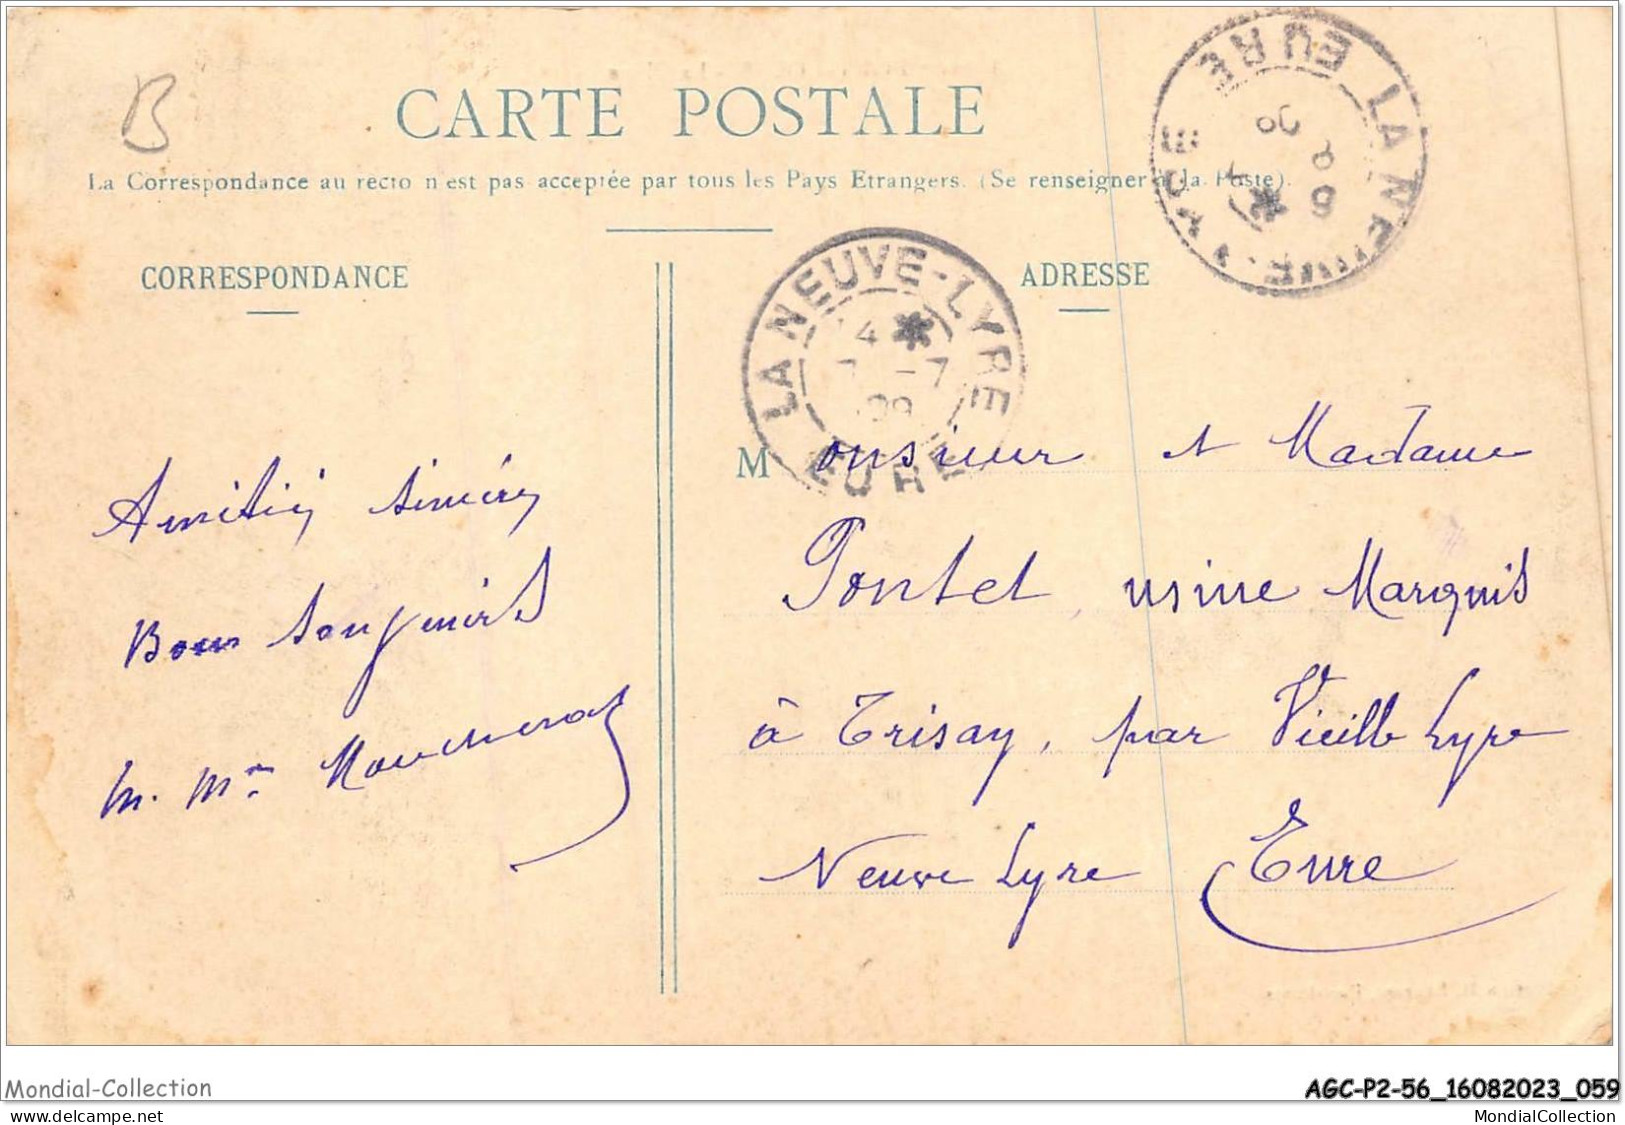 B
CARTE POSTALE
La Correspondance au recto n'est pas acceptée par tous les Pays Etrangers. (Se renseigner à la Poste).
CORRESPONDANCE
ADRESSE
LA NEUVE-LYRE
4 *
7 -7
09
EURE
LA NEUVE-LYRE
EURE
Amitiés sincères
Bons
M. Mme
Monsieur et Madame
Pontet, usine Marquis
à Trisay, par Vieille Lyre
Neuve Lyre Eure
Mondial-Collection
AGC-P2-56_16082023_059
www.delcampe.net
MondialCollection